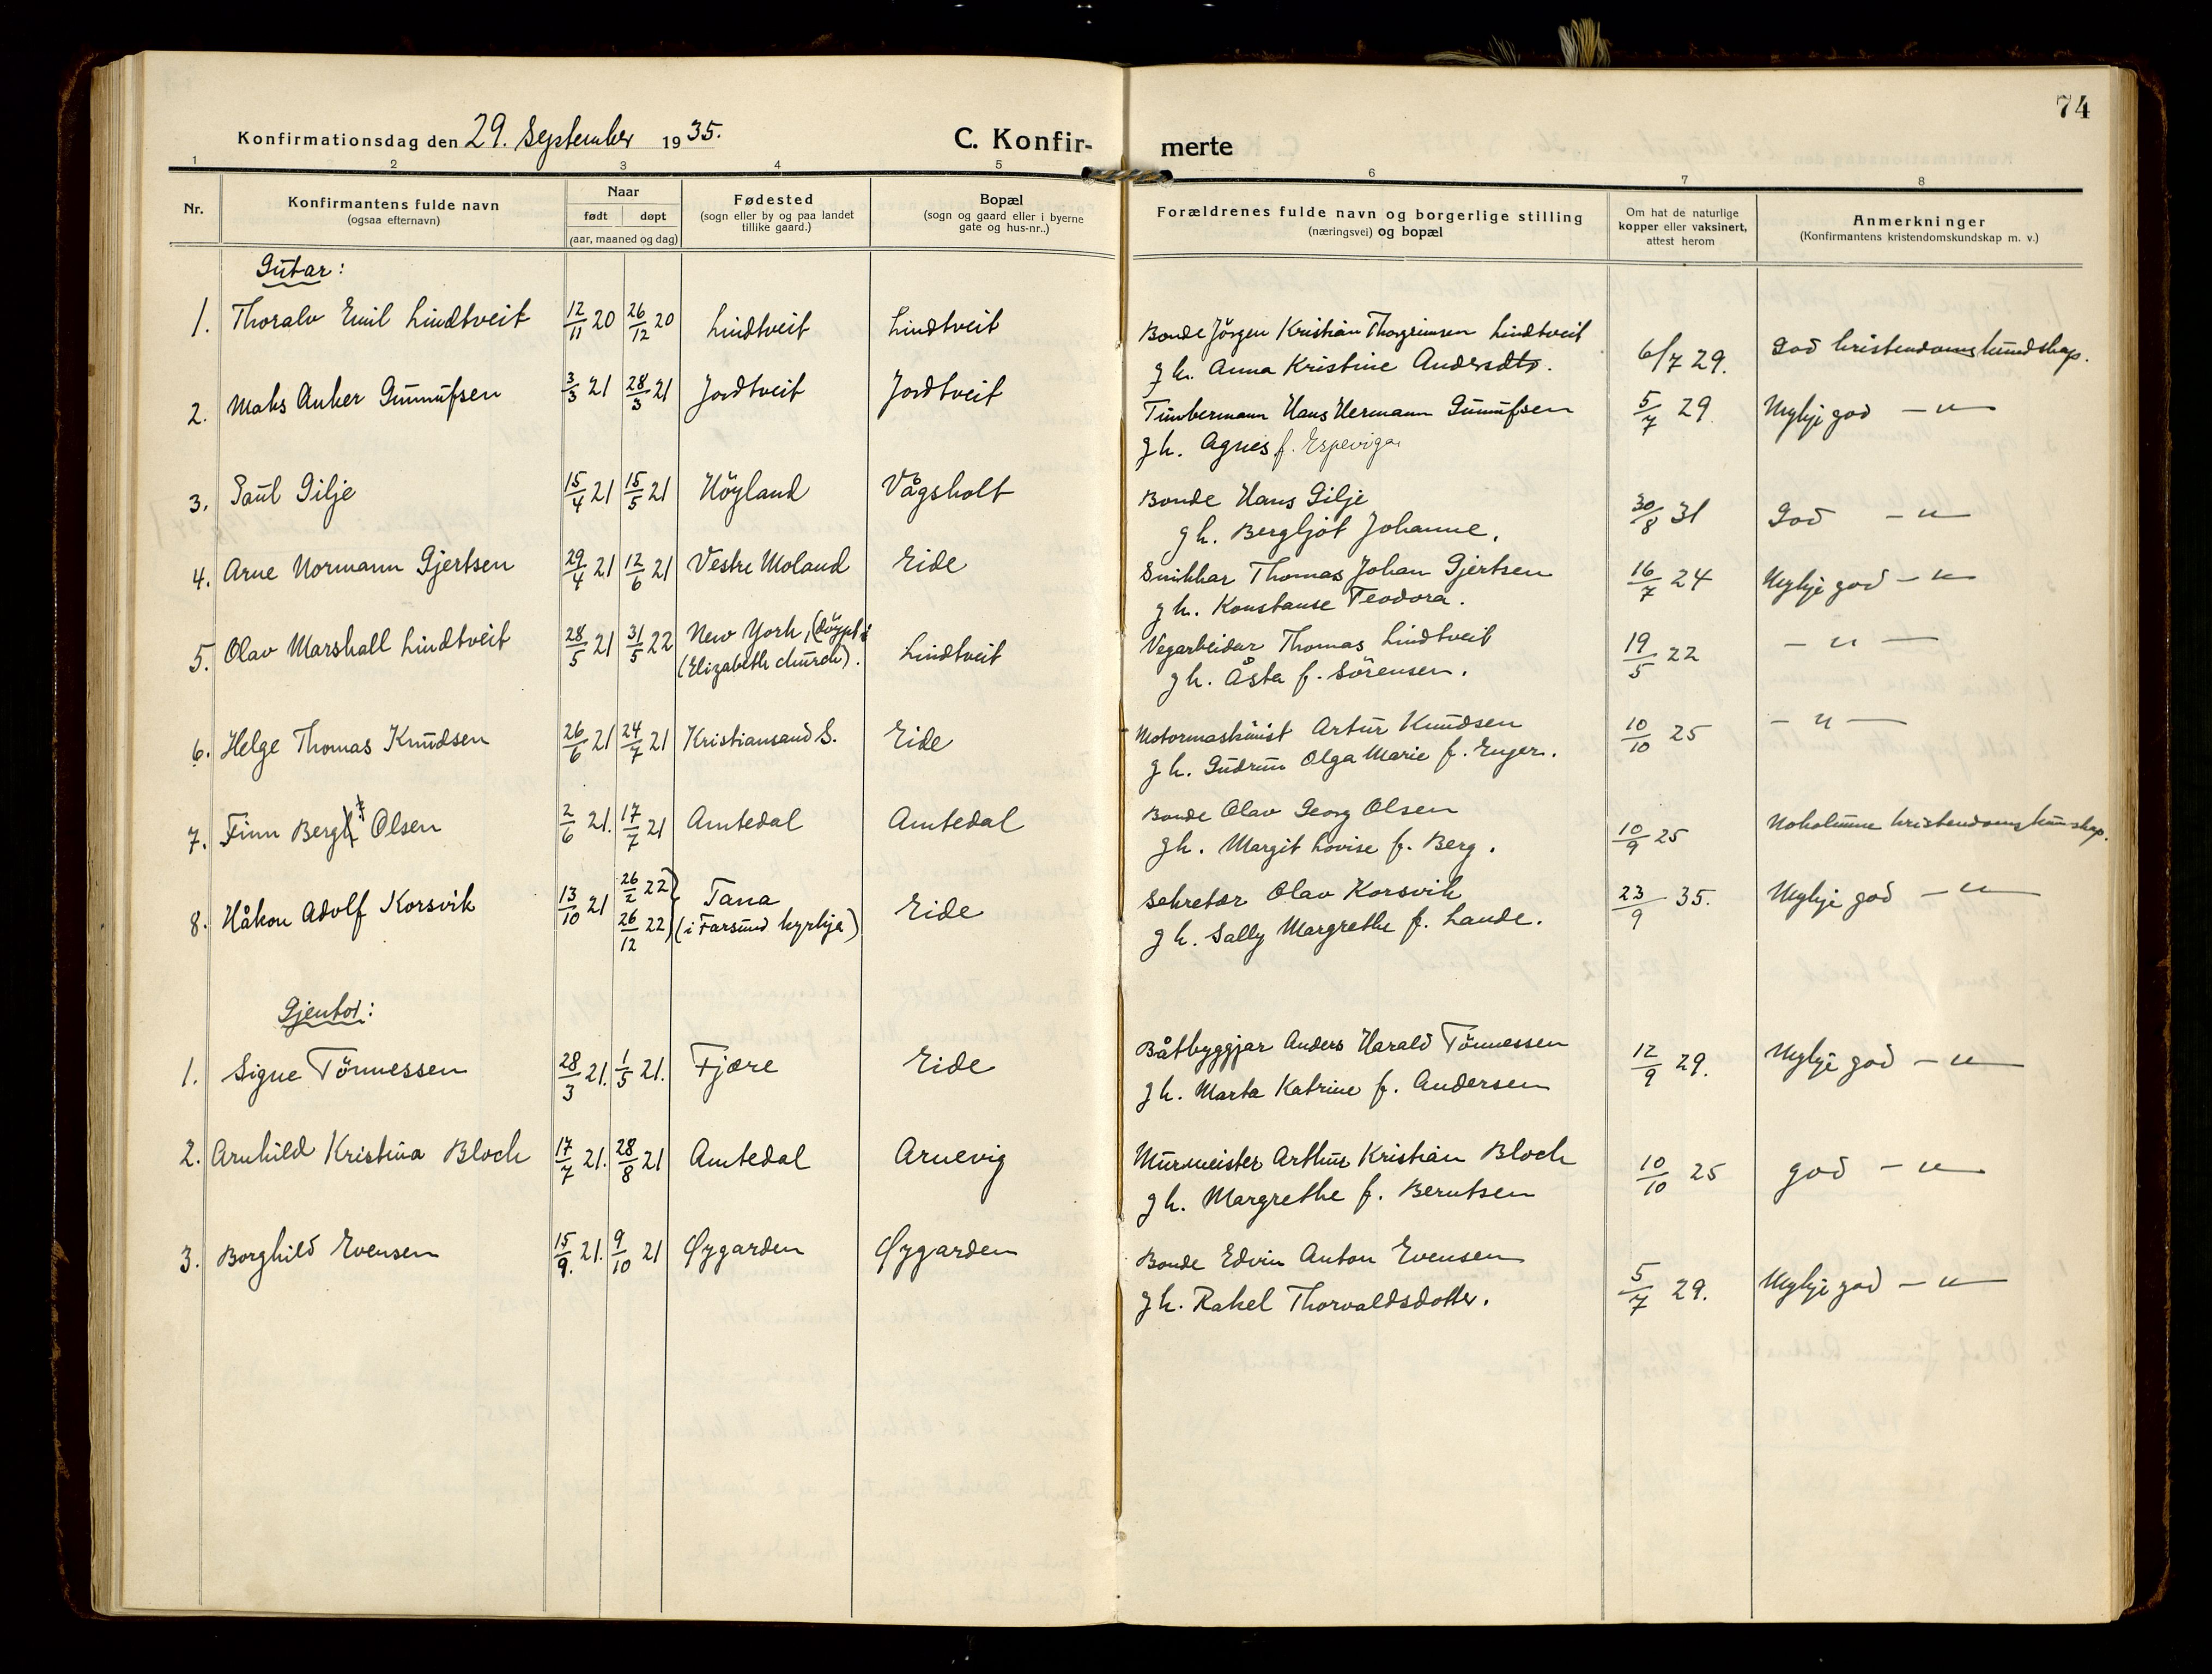 74
Konfirmationsdag den 29. September 1935. C. Konfirmerte
1 2 3 4 5 6 7 8
Nr. Konfirmantens fulde navn (ogsaa efternavn) Naar født døpt (aar, maaned og dag) Fødested (sogn eller by og paa landet tillike gaard.) Bopæl (sogn og gaard eller i byerne gate og hus-nr..) Forældrenes fulde navn og borgerlige stilling (næringsvei) og bopæl Om hat de naturlige kopper eller vaksinert, attest herom Anmerkninger (Konfirmantens kristendomskundskap m. v.)
Gutar:
1. Thoralv Emil Lindtveit 12/11 20 26/12 20 Lindtveit Lindtveit Bonde Jörgen Kristian Thorgrimsen Lindtveit 6/7 29. God kristendomskundskap.
g h. Anna Kristine Andersdtr.
2. Maks Anker Gunnufsen 3/3 21 28/3 21 Jordtveit Jordtveit Timbermann Hans Hermann Gunufsen 5/7 29 Mykje god — " —
g h. Agnes f. Espeviga
3. Paul Gilje 15/4 21 15/5 21 Höyland Vågsholt Bonde Hans Gilje 30/8 31 God — " —
g h. Bergljot Johanne.
4. Arne Normann Gjertsen 29/4 21 12/6 21 Vestre Moland Eide Snikkar Thomas Johan Gjertsen 16/7 24 Mykje god — " —
g h. Konstanse Teodora.
5. Olav Marshall Lindtveit 28/5 21 31/5 22 New York, (döypt i Lindtveit Vegarbeidar Thomas Lindtveit 19/5 22 — " —
(Elizabeth church). g h. Åsta f. Sörensen.
6. Helge Thomas Knudsen 26/6 21 24/7 21 Kristiansand S. Eide Motormaskinist Artur Knudsen 10/10 25 — " —
g h. Gudrun Olga Marie f. Enger.
7. Finn Berg Olsen 2/6 21. 17/7 21 Amtedal Amtedal Bonde Olav Georg Olsen 10/9 25 Nokolunne kristendomskunskap.
g h. Margit Lovise f. Berg.
8. Håkon Adolf Korsvik 13/10 21 26/2 22 Tana Eide Sekretær Olav Korsvik 23/9 35. Mykje god — " —
26/12 22 (i Farsund kyrkje) g h. Sally Margrethe f. Lande.
Gjentor:
1. Signe Tönnessen 28/3 21. 1/5 21. Fjære Eide Båtbyggjar Anders Harald Tönnessen 12/9 29. Mykje god — " —
g h. Marta Katrine f. Andersen
2. Arnhild Kristina Bloch 17/7 21. 28/8 21 Amtedal Arnevig Murmeister Arthur Kristian Bloch 10/10 25 god — " —
g h. Margrethe f. Berntsen
3. Borghild Evensen 15/9. 21. 9/10 21 Øygarden Øygarden Bonde Edvin Anton Evensen 5/7 29. Mykje god — " —
g h. Rakel Thorvaldsdotter.